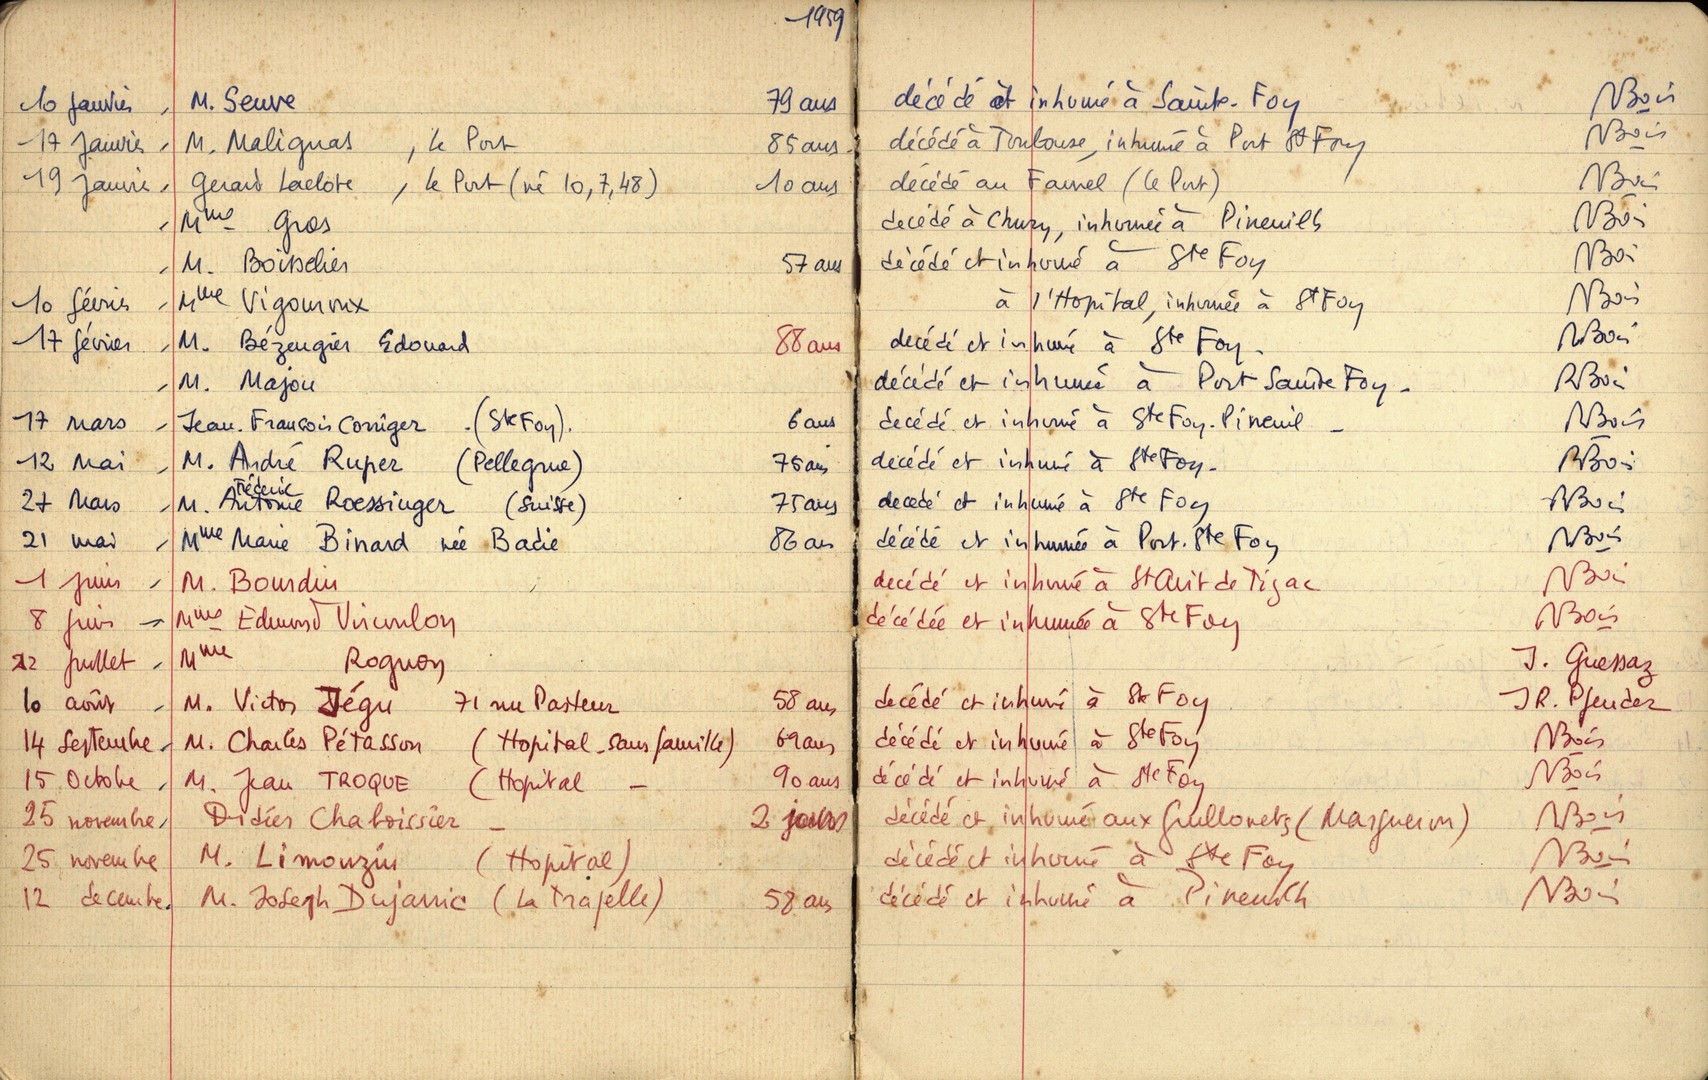 1959
10 Janvier, M. Seuve 79 ans décédé et inhumé à Sainte-Foy NBois
17 Janvier, M. Malignas, le Port 85 ans décédé à Toulouse, inhumé à Port Ste Foy NBois
19 Janvier, Gerard Laclote, le Port (né 10,7,48) 10 ans décédé au Faurel (le Port) NBois
Mme Gros decédé à Chury, inhumée à Pineuilh NBois
M. Boisselier 57 ans décédé et inhumé à Ste Foy NBois
10 février, Mme Vigouroux à l'Hopital, inhumée à St Foy NBois
17 février, M. Bézeugier Edouard 88 ans décédé et inhumé à Ste Foy - NBois
M. Majou décédé et inhumé à Port Sainte Foy - RBois
17 mars, Jean-François Corriger - (Ste Foy). 6 ans decédé et inhumé à Ste Foy-Pineuil - NBois
12 Mai, M. André Ruper (Pellegrue) 75 ans décédé et inhumé à Ste Foy - RBois
27 Mars, M. Antoine Fréderic Roessinger (Suisse) 75 ans decédé et inhumé à Ste Foy NBois
21 mai, Mme Marie Binard née Badie 86 ans décédé et inhumée à Port-Ste Foy NBois
1 juin, M. Bourdin decédé et inhumé à St Avit de Tizac NBois
8 juin - Mme Edmond Vircoulon décédée et inhumée à Ste Foy NBois
22 juillet, Mme Rognon J. Guessaz
10 août, M. Victor Jégu 71 rue Pasteur 58 ans decédé et inhumé à Ste Foy JR. Pfender
14 Septembre, M. Charles Pétasson (Hopital-sans famille) 69 ans décédé et inhumé à Ste Foy NBois
15 Octobre, M. Jean TROQUE (Hopital - 90 ans décédé et inhumé à Ste Foy NBois
25 novembre, Didier Chaboissier - 2 jours décédé et inhumé aux Guillonets (Margueron) NBois
25 novembre M. Limouzin (Hopital) décédé et inhumé à Ste Foy NBois
12 decembre. M. Joseph Dujarric (La Trajelle) 58 ans décédé et inhumé à Pineuilh NBois